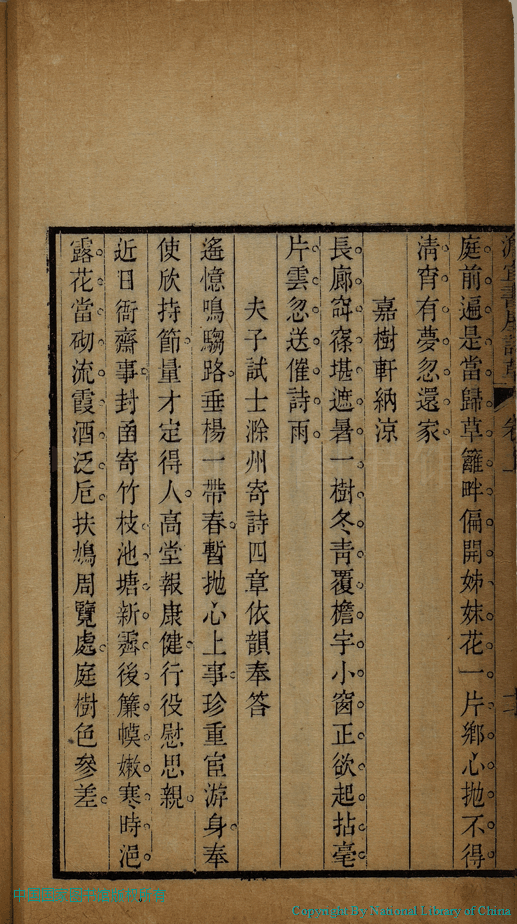 庭前遍是當歸草籬畔偏開姊妹花一片鄉心拋不得
淸宵有夢忽還家
嘉樹軒納涼
長廊窈窱堪遮暑一樹冬靑覆檐宇小窗正欲起拈毫
片雲忽送催詩雨
夫子試士滁州寄詩四章依韻奉答
遙憶鳴騶路垂楊一帶春暫拋心上事珍重宦游身奉
使欣持節量才定得人高堂報康健行役慰思親
近日衙齋事封函寄竹枝池塘新霽後簾幙嫩寒時浥
露花當砌流霞酒泛卮扶鳩周覽處庭樹色參差
Copyright By National Library of China